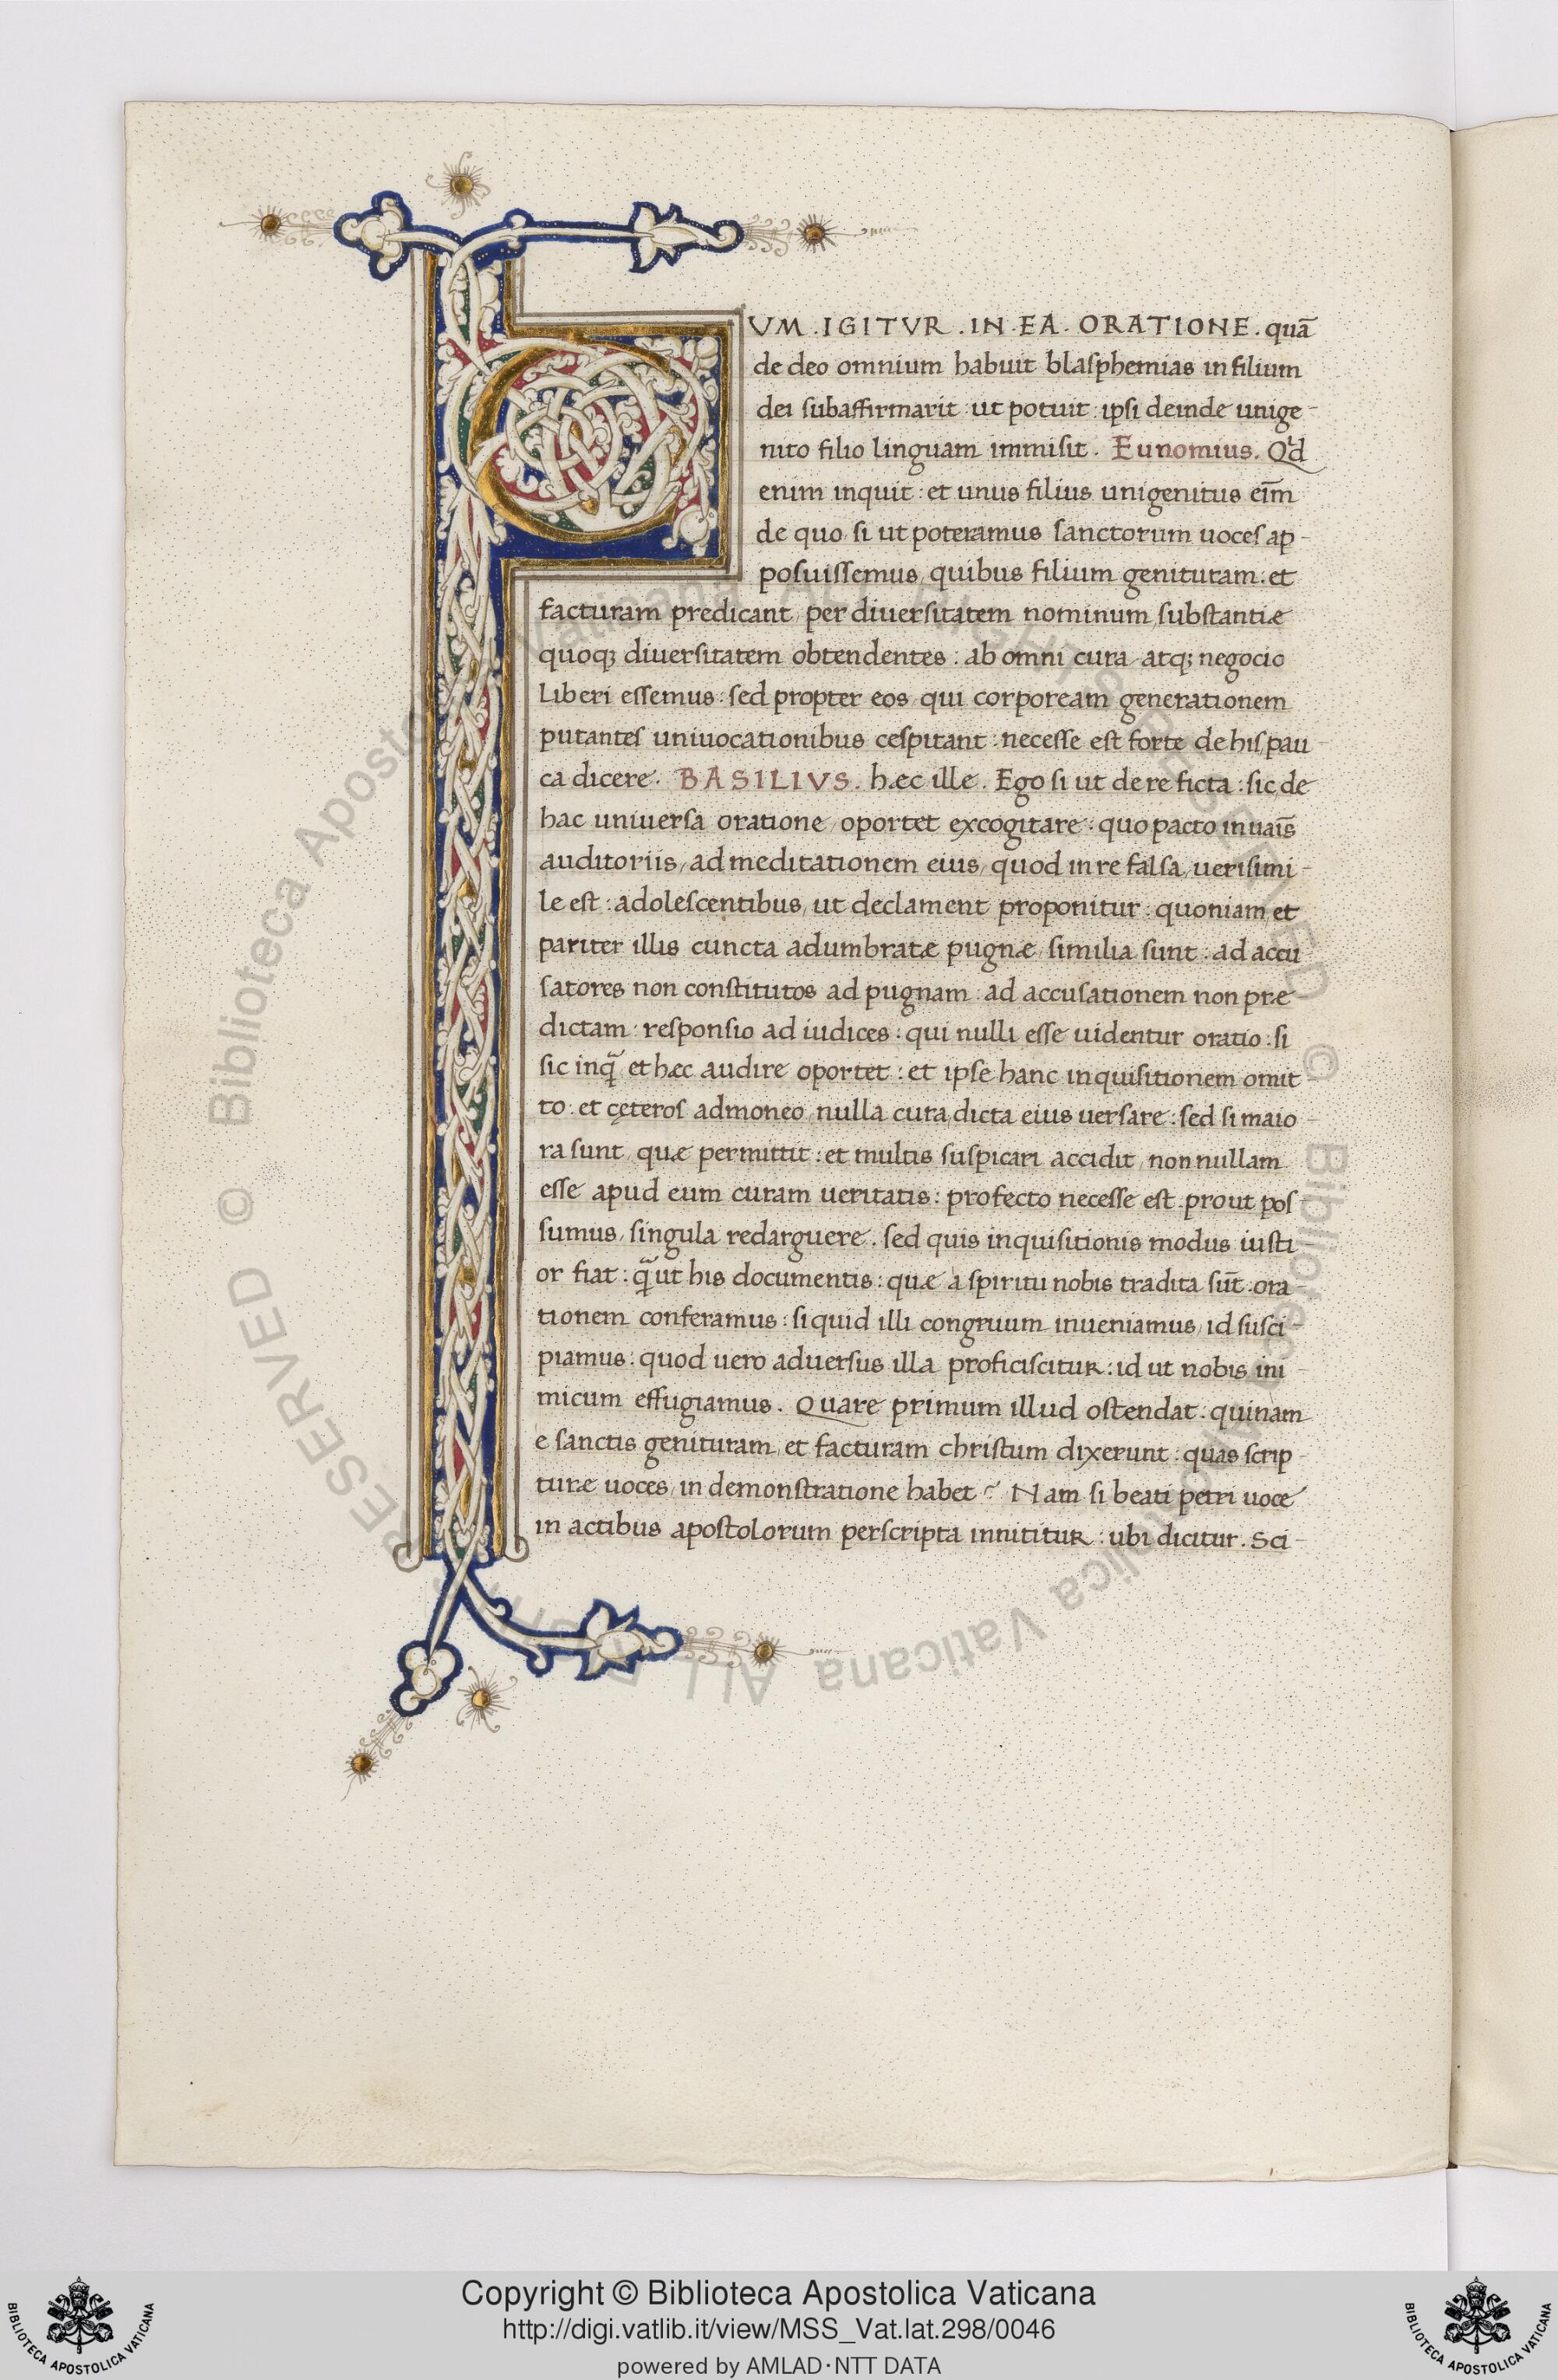 CUM . IGITVR . IN . EA . ORATIONE . quā
de deo omnium habuit blasphemias in filium
dei subaffirmarit : ut potuit : ipsi deinde unige-
nito filio linguam immisit . Eunomius . Qd
enim inquit : et unus filius unigenitus eīm
de quo si ut poteramus sanctorum uoces ap-
posuissemus, quibus filium genituram : et
facturam predicant, per diuersitatem nominum substantiæ
quoq; diuersitatem obtendentes : ab omni cura atq; negocio
Liberi essemus : sed propter eos, qui corpoream generationem
putantes uniuocationibus cespitant : necesse est forte de his, pau-
ca dicere . BASILIVS . hæc ille . Ego si ut de re ficta : sic, de
hac uniuersa oratione, oportet excogitare : quo pacto in uaīs
auditoriis, ad meditationem eius, quod in re falsa, uerisimi-
le est : adolescentibus, ut declament proponitur : quoniam et
pariter illis cuncta adumbratæ pugnæ, similia sunt : ad accu
satores non constitutos ad pugnam : ad accusationem non præ
dictam : responsio ad iudices : qui nulli esse uidentur oratio : si
sic inq̃ et hæc audire oportet : et ipse hanc inquisitionem omit-
to : et cęteros admoneo, nulla cura, dicta eius uersare : sed si maio-
ra sunt, quæ permittit : et multis suspicari accidit, non nullam
esse apud eum curam ueritatis : profecto necesse est . prout pos-
sumus, singula redarguere . sed quis inquisitionis modus iusti
or fiat : q̃ ut his documentis : quæ a spiritu nobis tradita sūt . ora-
tionem conferamus : si quid illi congruum inueniamus, id susci-
piamus : quod uero aduersus illa proficiscitur : id ut nobis ini-
micum effugiamus . Quare primum illud ostendat : quinam
e sanctis genituram, et facturam christum dixerunt : quas scrip-
turæ uoces, in demonstratione habet ? Nam si beati petri uoce
in actibus apostolorum perscripta innititur : ubi dicitur . Sci-
© Biblioteca Apostolica Vaticana ALL RIGHTS RESERVED © Biblioteca Apostolica Vaticana ALL RIGHTS RESERVED
Copyright © Biblioteca Apostolica Vaticana
http://digi.vatlib.it/view/MSS_Vat.lat.298/0046
powered by AMLAD·NTT DATA
BIBLIOTECA APOSTOLICA VATICANA
BIBLIOTECA APOSTOLICA VATICANA